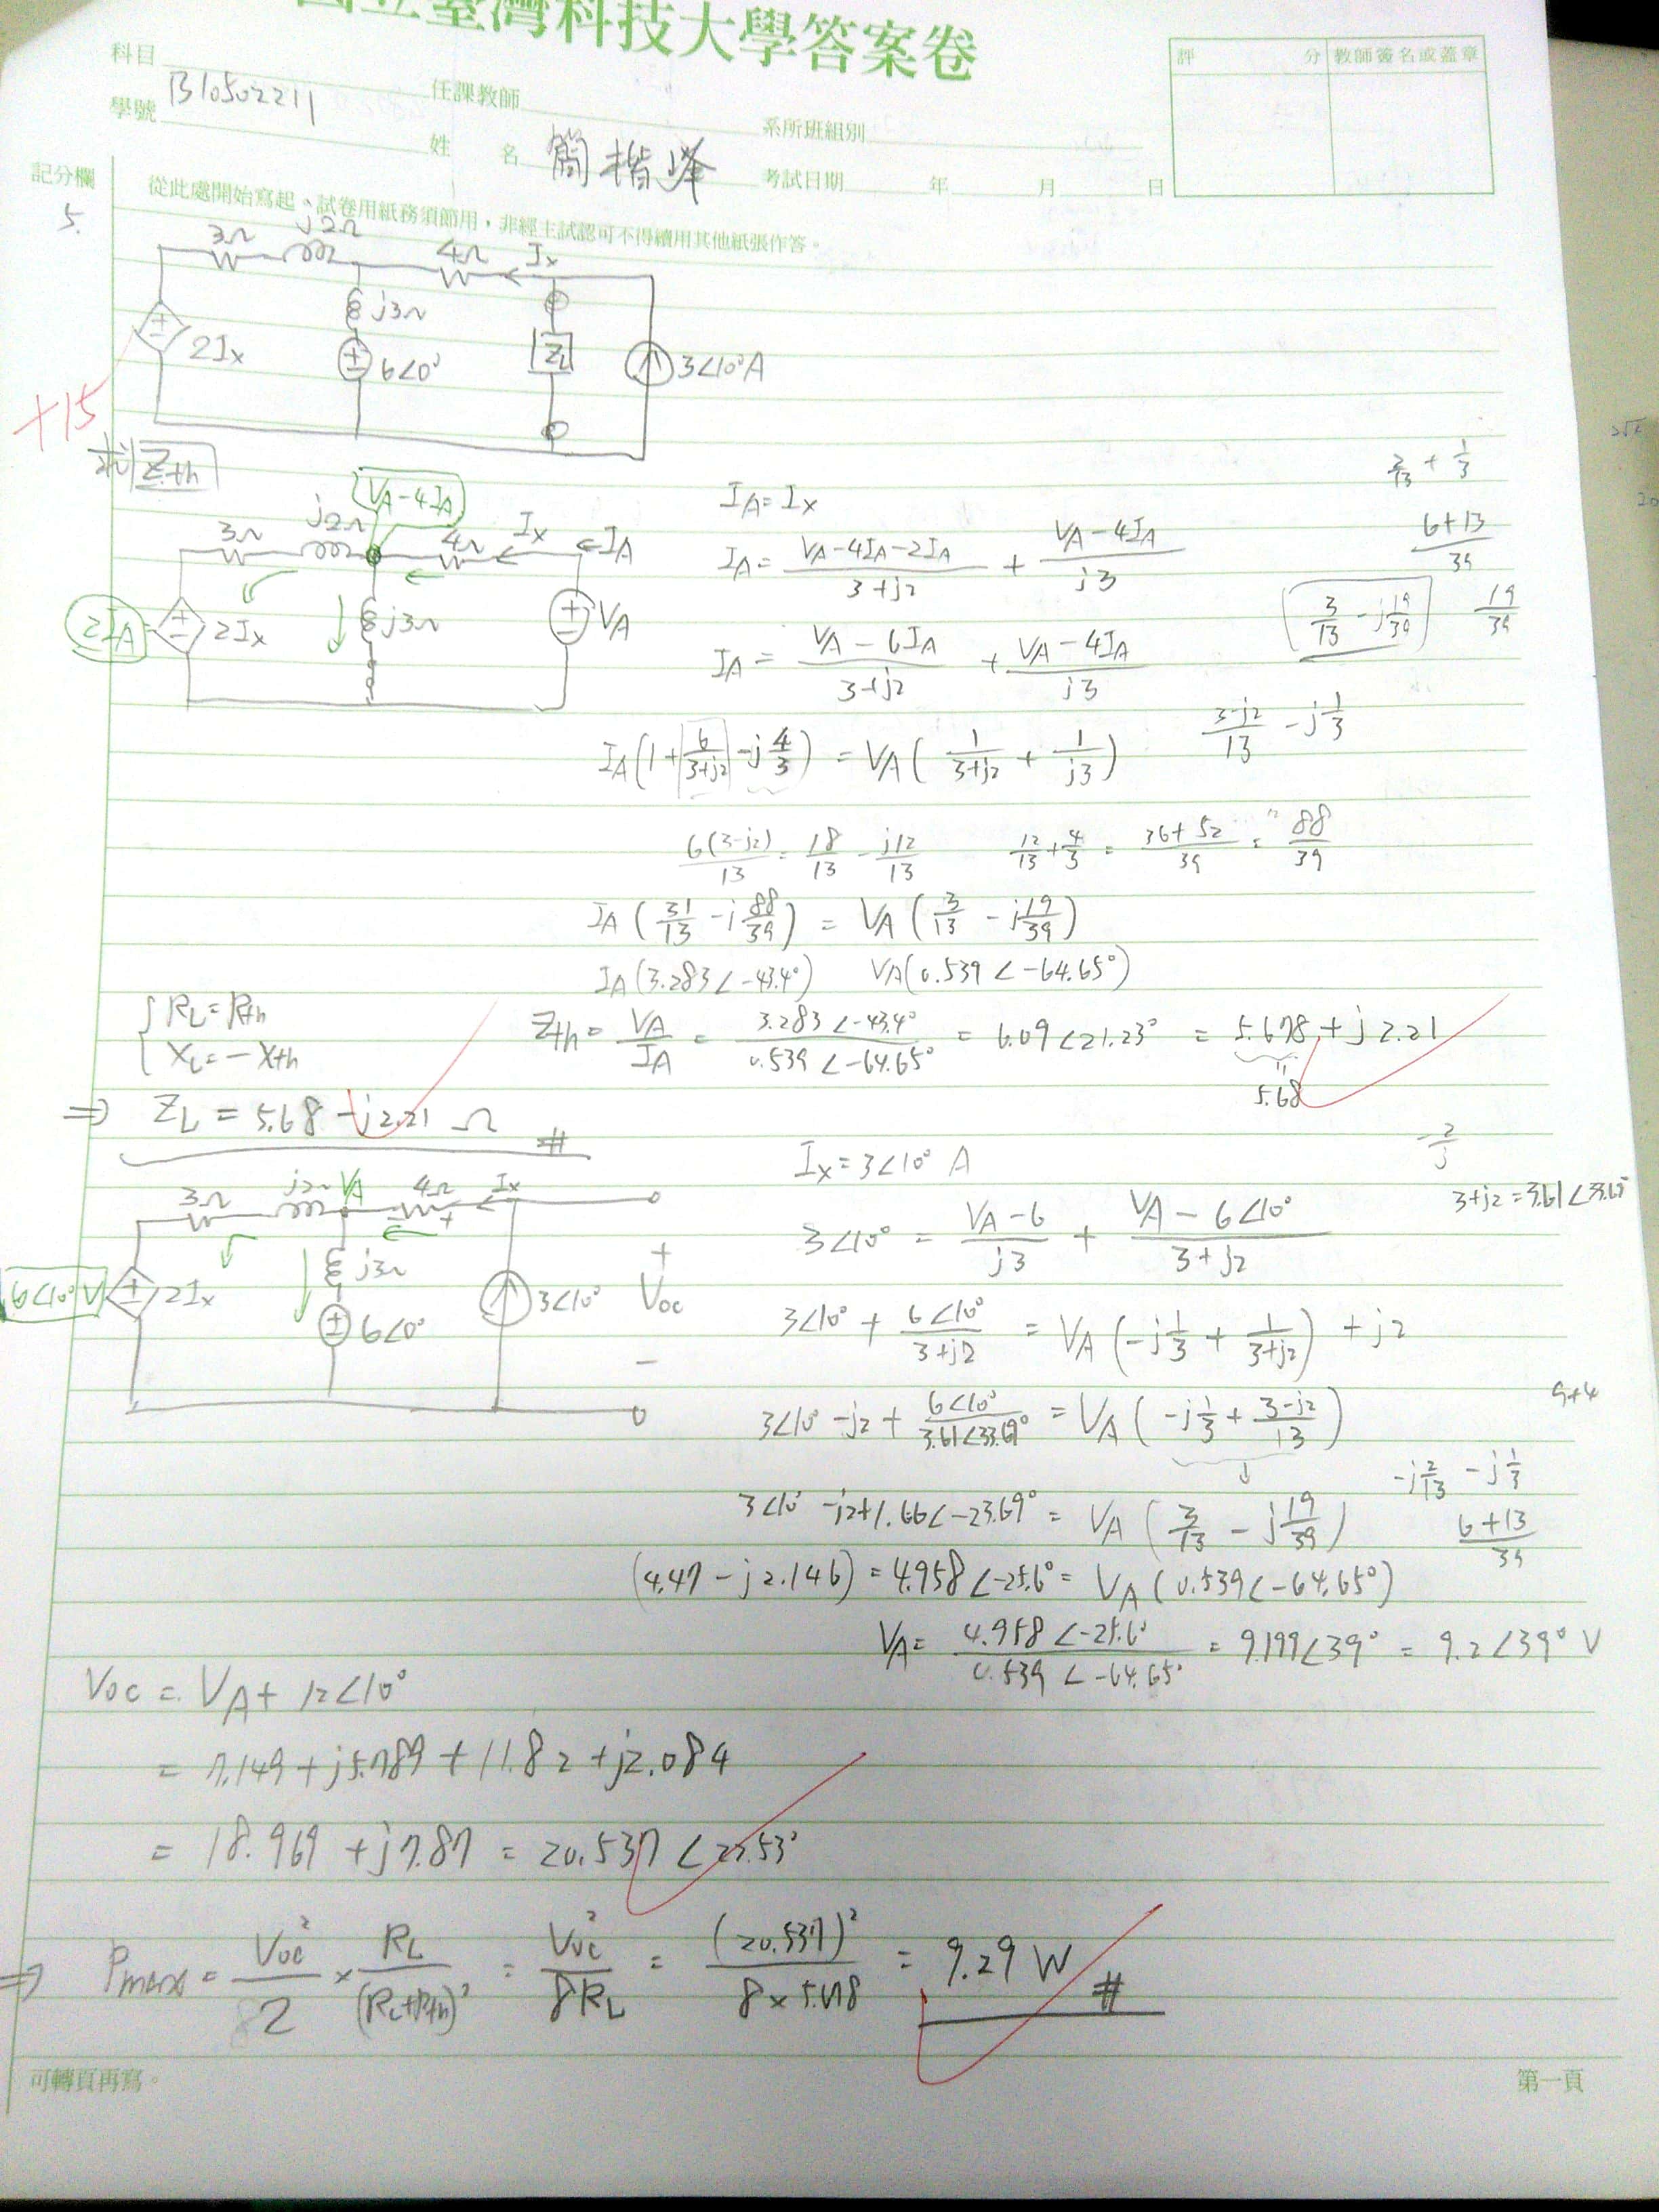 國立臺灣科技大學答案卷
評 分 教師簽名或蓋章
科目
任課教師
學號 B10502211
系所班組別
姓 名 簡楷峰
考試日期 年 月 日
記分欄
從此處開始寫起。試卷用紙務須節用,非經主試認可不得續用其他紙張作答。
5.
3Ω j2Ω 4Ω Ix
j3Ω
2Ix 6∠0° ZL 3∠10°A
+15
求 Zth
VA-4IA
3Ω j2Ω 4Ω Ix IA
2IA= 2Ix j3Ω VA
IA = Ix
IA = (VA-4IA-2IA)/(3+j2) + (VA-4IA)/(j3)
IA = (VA-6IA)/(3+j2) + (VA-4IA)/(j3)
2/13 + 1/3
(6+13)/39
3/13 - j19/39 19/39
(3-j2)/13 - j1/3
IA(1 + 6/(3+j2) - j4/3) = VA(1/(3+j2) + 1/(j3))
6(3-j2)/13 = 18/13 - j12/13 12/13 + 4/3 = (36+52)/39 = 88/39
IA(31/13 - j88/39) = VA(3/13 - j19/39)
IA(3.283∠-43.4°) VA(0.539∠-64.65°)
{ RL = Rth
XL = -Xth
Zth = VA/IA = (3.283∠-43.4°)/(0.539∠-64.65°) = 6.09∠21.23° = 5.678 + j2.21
5.68
⇒ ZL = 5.68 - j2.21 Ω #
3Ω j2Ω VA 4Ω Ix
6∠10°V 2Ix j3Ω 6∠0° 3∠10° + Voc -
Ix = 3∠10° A
3∠10° = (VA-6)/(j3) + (VA-6∠10°)/(3+j2)
-2/j
3+j2 = 3.61∠33.69°
3∠10° + 6∠10°/(3+j2) = VA(-j1/3 + 1/(3+j2)) + j2
9+4
3∠10° - j2 + 6∠10°/3.61∠33.69° = VA(-j1/3 + (3-j2)/13)
-j2/13 - j1/3
(6+13)/39
3∠10° - j2 + 1.66∠-23.69° = VA(3/13 - j19/39)
(4.47 - j2.146) = 4.958∠-25.6° = VA(0.539∠-64.65°)
VA = (4.958∠-25.6°)/(0.539∠-64.65°) = 9.199∠39° = 9.2∠39° V
Voc = VA + 12∠10°
= 7.149 + j5.789 + 11.82 + j2.084
= 18.969 + j7.87 = 20.537∠22.53°
⇒ Pmax = Voc²/2 × RL/(RL+Rth)² = Voc²/8RL = (20.537)²/(8×5.678) = 9.29 W #
可轉頁再寫。
第一頁